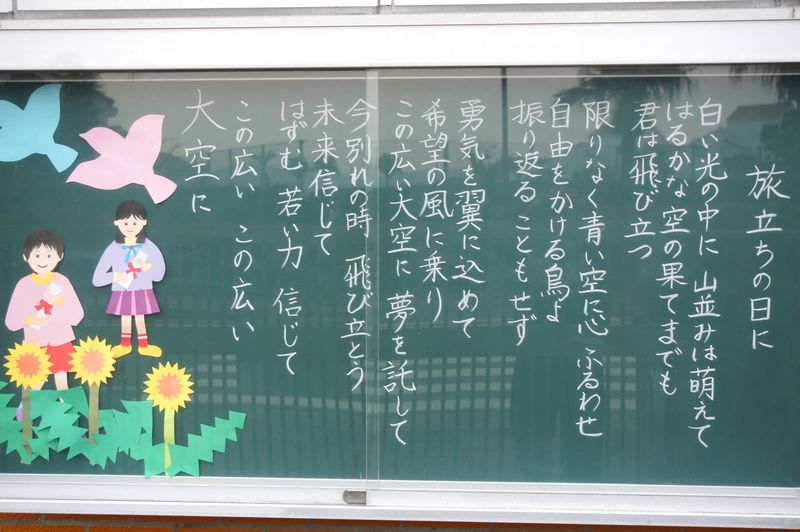 旅立ちの日に
白い光の中に 山並みは萌えて
はるかな空の果てまでも
君は飛び立つ
限りなく青い空に心ふるわせ
自由をかける鳥よ
振り返る こともせず
勇気を翼に込めて
希望の風に乗り
この広い大空に 夢を託して
今別れの時 飛び立とう
未来信じて
はずむ 若い力 信じて
この広い この広い
大空に